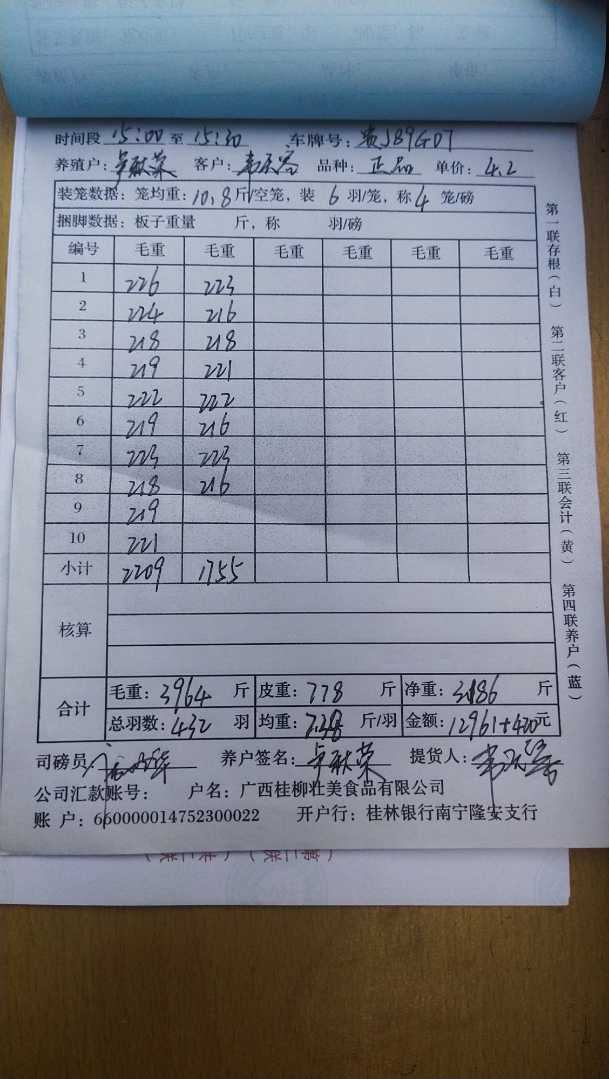 时间段 15:00 至 15:30 车牌号: 贵J89GD7
养殖户: 卓献荣 客户: 品种: 正品 单价: 4.2
装笼数据: 笼均重: 10.8斤/空笼, 装 6 羽/笼, 称 4 笼/磅
捆脚数据: 板子重量 斤, 称 羽/磅
编号 毛重 毛重 毛重 毛重 毛重 毛重
1 226 223
2 224 216
3 218 218
4 219 221
5 222 222
6 219 216
7 223 223
8 218 216
9 219
10 221
小计 2209 1755
核算
合计 毛重: 3964 斤 皮重: 778 斤 净重: 3186 斤
总羽数: 432 羽 均重: 7.38 斤/羽 金额: 12961+420元
司磅员: 养户签名: 卓献荣 提货人:
公司汇款账号: 户名: 广西桂柳壮美食品有限公司
账 户: 660000014752300022 开户行: 桂林银行南宁隆安支行
第一联存根(白) 第二联客户(红) 第三联会计(黄) 第四联养户(蓝)